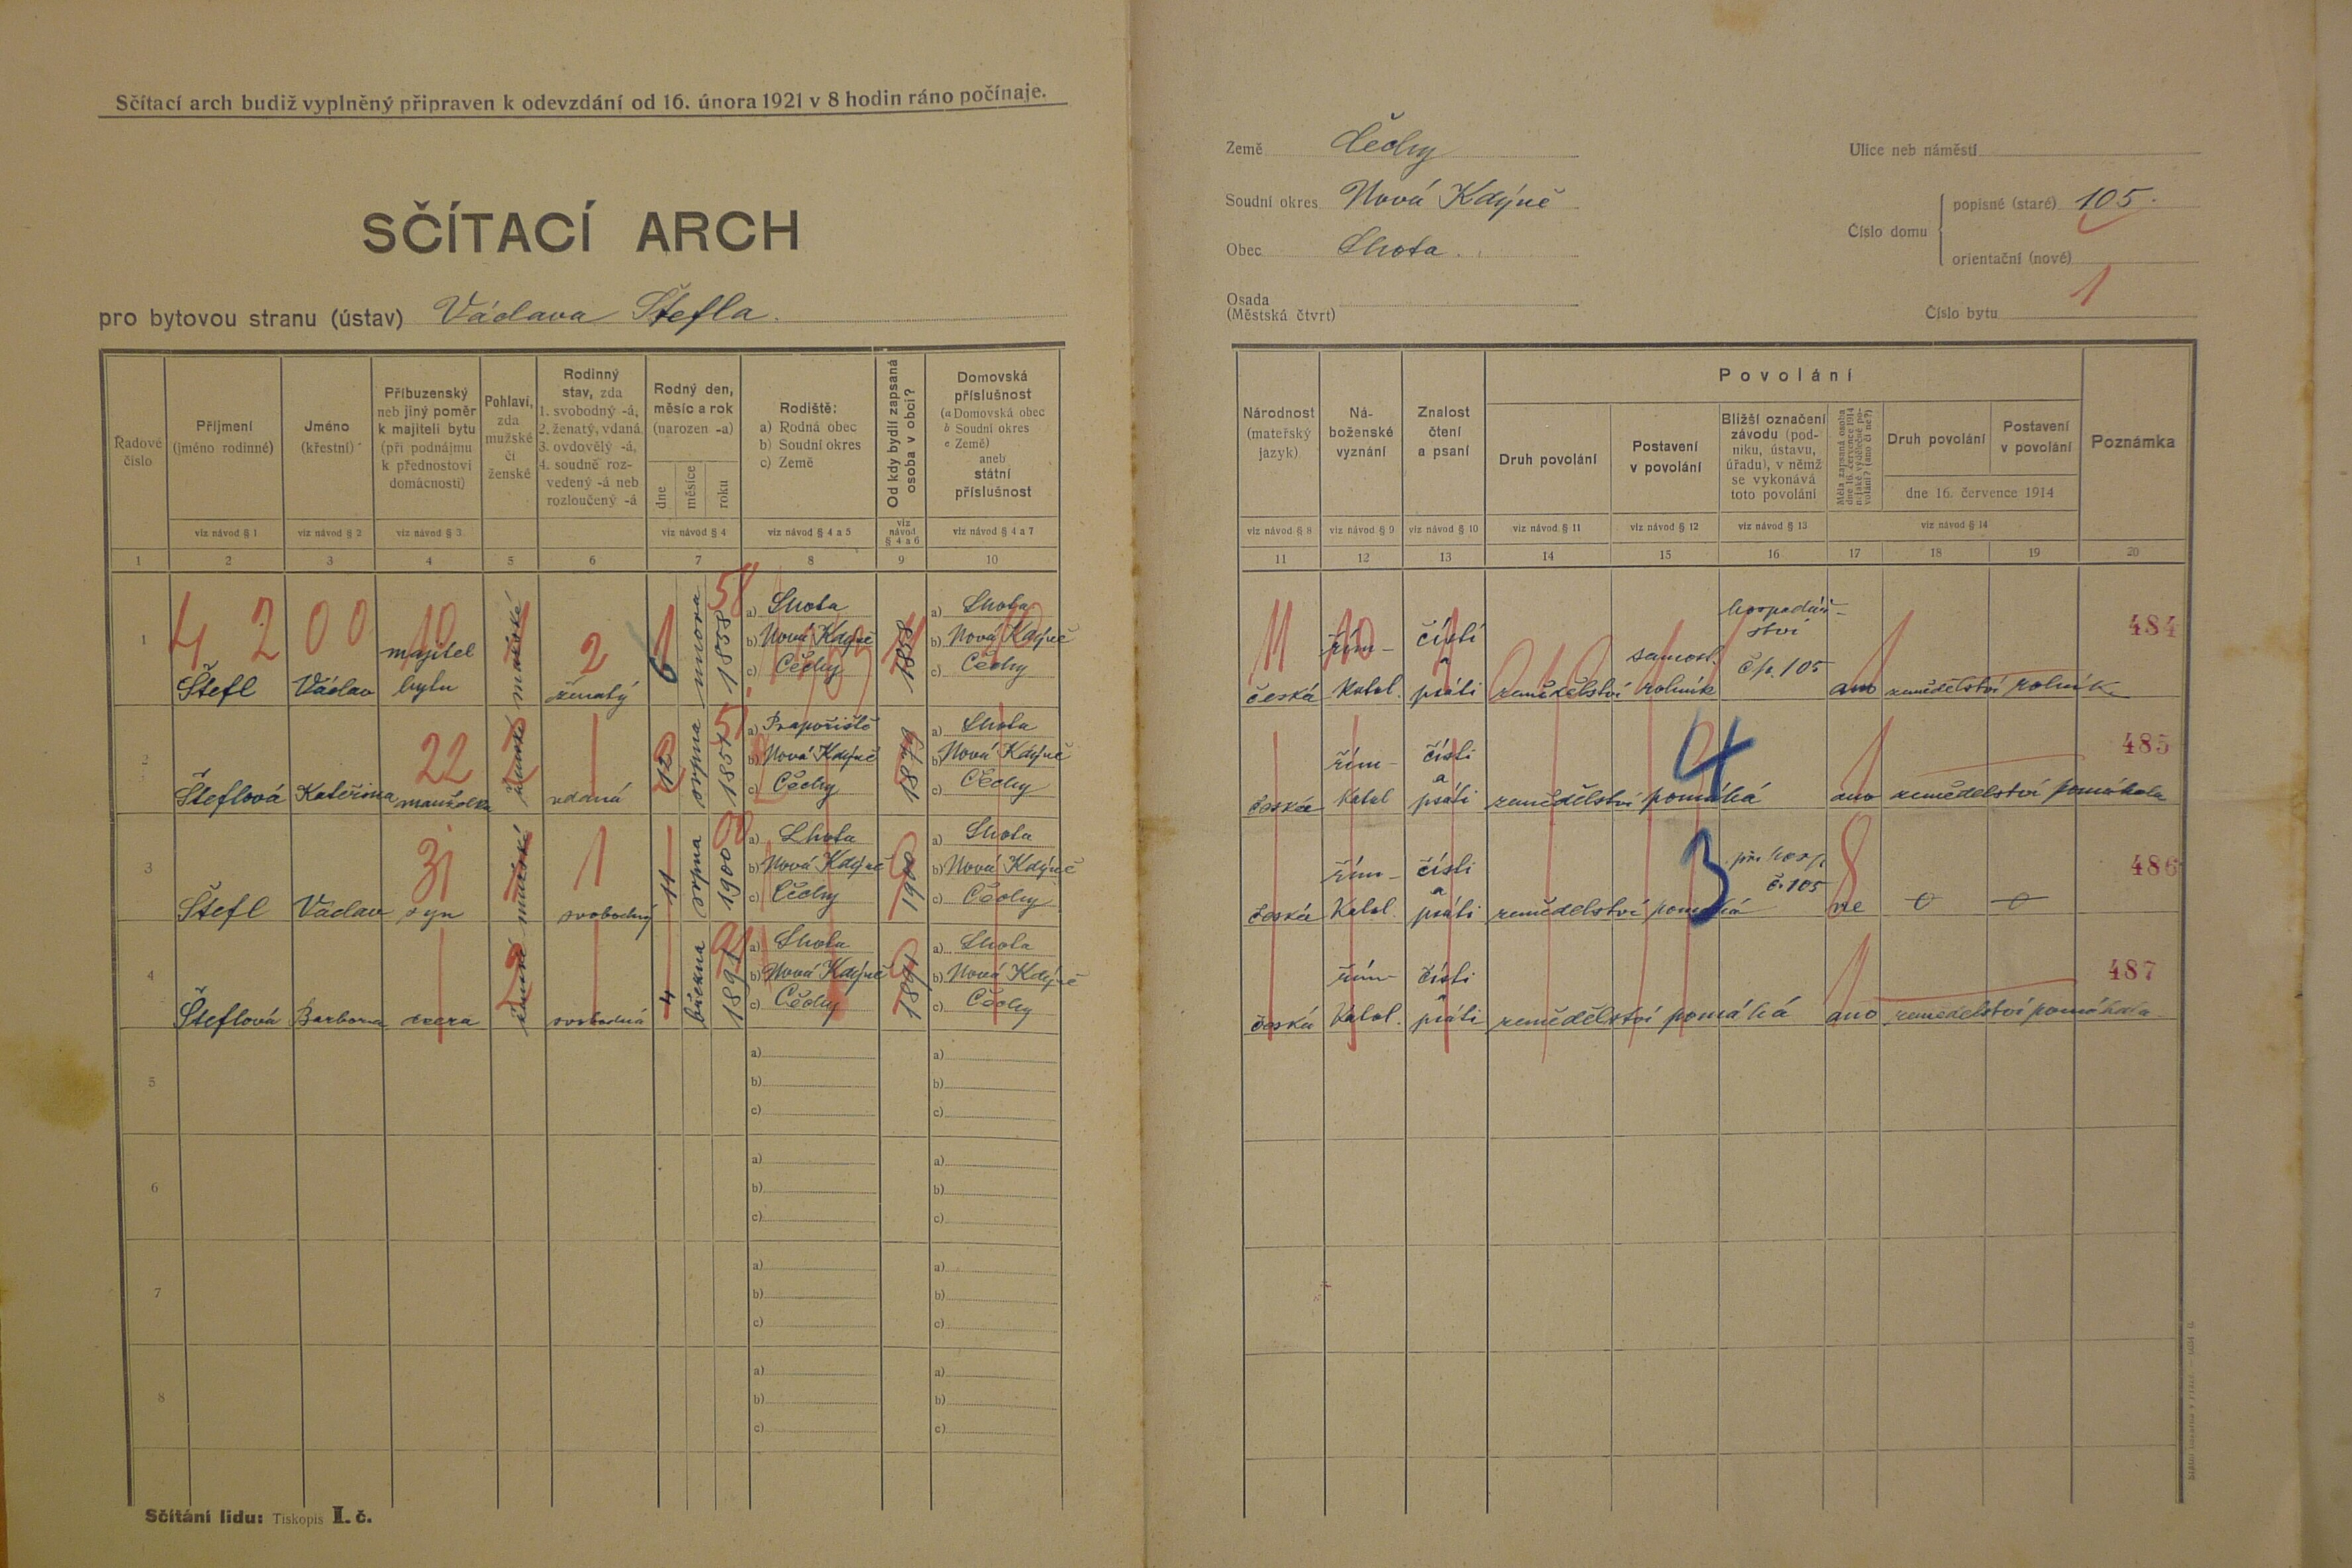 Sčítací arch budiž vyplněný připraven k odevzdání od 16. února 1921 v 8 hodin ráno počínaje.
SČÍTACÍ ARCH
pro bytovou stranu (ústav) Václava Štefla.
Řadové číslo
Příjmení (jméno rodinné)
viz návod § 1
Jméno (křestní)
viz návod § 2
Příbuzenský neb jiný poměr k majiteli bytu (při podnájmu k přednostovi domácnosti)
viz návod § 3
Pohlaví, zda mužské či ženské
Rodinný stav, zda 1. svobodný -á, 2. ženatý, vdaná, 3. ovdovělý -á, 4. soudně rozvedený -á neb rozloučený -á
Rodný den, měsíc a rok (narozen -a)
dne měsíce roku
viz návod § 4
Rodiště: a) Rodná obec b) Soudní okres c) Země
viz návod § 4 a 5
Od kdy bydlí zapsaná osoba v obci?
viz návod § 4 a 6
Domovská příslušnost (a Domovská obec b Soudní okres c Země) aneb státní příslušnost
viz návod § 4 a 7
1 2 3 4 5 6 7 8 9 10
4 2 0 0 10 1 2 1 58
1 Štefl Václav majitel bytu mužské ženatý 6 února 1858
a) Lhota
b) Nová Kdyně
c) Čechy
1858
a) Lhota
b) Nová Kdyně
c) Čechy
22
2 Šteflová Kateřina manželka ženské vdaná 12 srpna 1857
a) Prapořiště
b) Nová Kdýně
c) Čechy
1879
a) Lhota
b) Nová Kdýně
c) Čechy
31 1 00
3 Štefl Václav syn mužské svobodný 11 srpna 1900
a) Lhota
b) Nová Kdýně
c) Čechy
1900
a) Lhota
b) Nová Kdýně
c) Čechy
4 Šteflová Barbora dcera ženské svobodná 4 března 1891
a) Lhota
b) Nová Kdýně
c) Čechy
1891
a) Lhota
b) Nová Kdýně
c) Čechy
5 a) a)
b) b)
c) c)
6 a) a)
b) b)
c) c)
7 a) a)
b) b)
c) c)
8 a) a)
b) b)
c) c)
Sčítání lidu: Tiskopis I. č.
Země Čechy
Soudní okres Nová Kdýně
Obec Lhota
Osada (Městská čtvrt)
Ulice neb náměstí
Číslo domu
popisné (staré) 105.
orientační (nové)
Číslo bytu 1
Národnost (mateřský jazyk)
viz návod § 8
Náboženské vyznání
viz návod § 9
Znalost čtení a psaní
viz návod § 10
Povolání
Druh povolání
viz návod § 11
Postavení v povolání
viz návod § 12
Bližší označení závodu (podniku, ústavu, úřadu), v němž se vykonává toto povolání
viz návod § 13
Měla zapsaná osoba dne 16. července 1914 nějaké výdělečné povolání? (ano či ne?)
Druh povolání
Postavení v povolání
dne 16. července 1914
viz návod § 14
Poznámka
11 12 13 14 15 16 17 18 19 20
11 10 1
česká řím- katol. čísti a psáti zemědělství samost. rolník hospodářství čp. 105 ano zemědělství rolník 484
4
česká řím- katol čísti a psáti zemědělství pomáhá ano zemědělství pomáhala 485
3 8
česká řím- katol. čísti a psáti zemědělství pomáhá při hosp. č. 105 ne 0 0 486
česká řím- katol. čísti a psáti zemědělství pomáhá ano zemědělství pomáhala 487